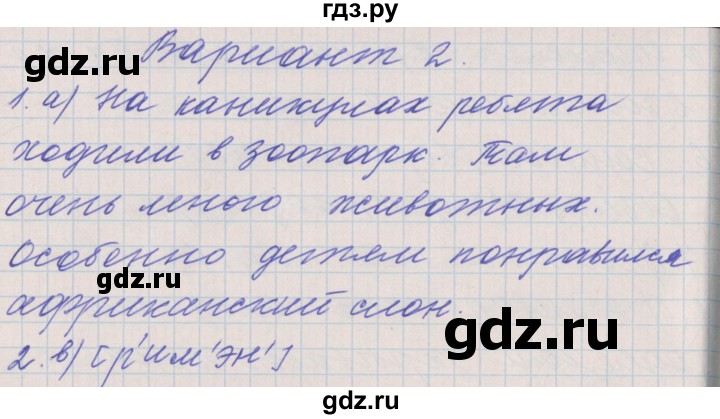 гдз.ру
Вариант 2.
1. а) На каникулах ребята
ходили в зоопарк. Там
очень много животных.
Особенно детям понравился
африканский слон.
2. в) [р'им'эн']
gdz.ru
gdz.ru
gdz.ru
gdz.ru
gdz.ru
gdz.ru
gdz.ru